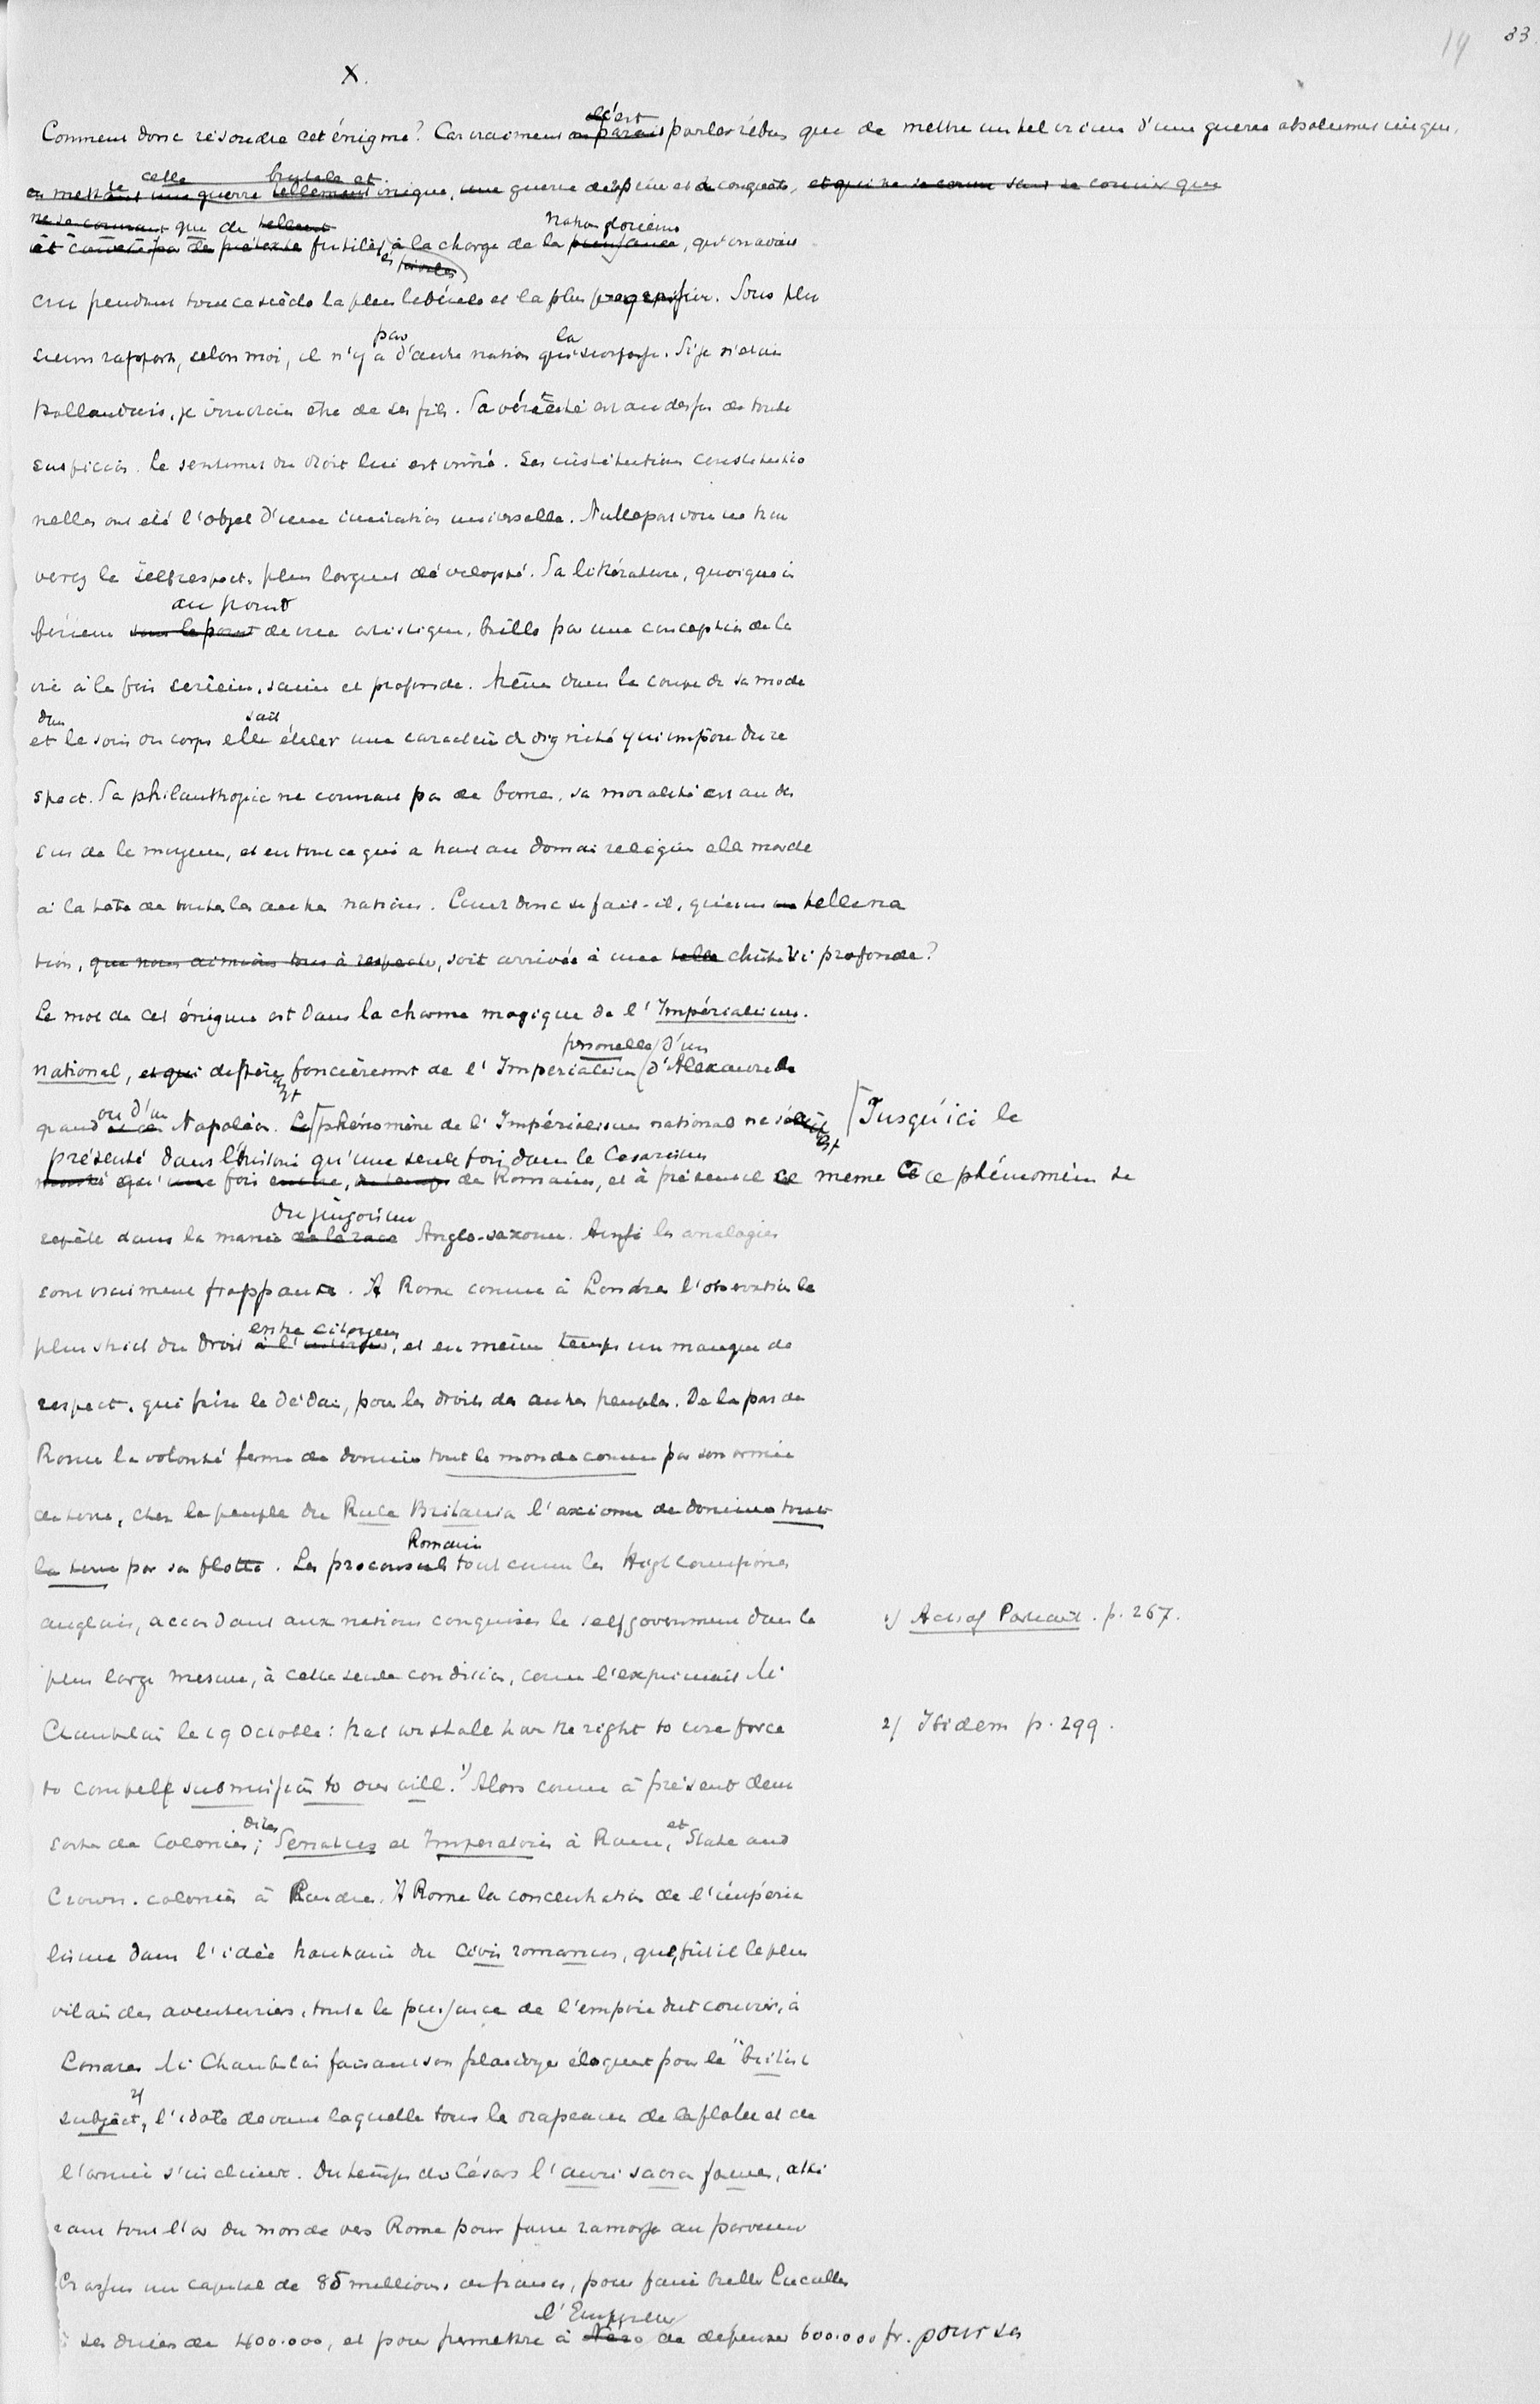 14 33.
X.
Comment donc résoudre cet énigme? Car vraiment c'est parler rébus que de mettre un tel crime d'une guerre absolument inique,
celle brutale et
en mettant une guerre tellement inique, une guerre de rapine et de conquête,
ne se couvrant que de
futiles, à la charge de la nation glorieuse, qu'on avait
cru pendant tout ce siècle la plus libérale et la plus progressive. Sous plu
sieurs rapports, selon moi, il n'y a pas d'autre nation qui la surpasse. Si je n'étais
Hollandais, je voudrais être de ses fils. Sa véracité est au dessus de toute
suspicion. Le sentiment du droit lui est inné. Ses institutions constitutio
nelles ont été l'objet d'une imitation universelle. Nulle part vous ne trou
verez le selfrespect plus largement développé. Sa littérature, quoique in
au point
férieure sous le point de vue artistique, brille par une conception de la
vie à la fois sérieuse, saine et profonde. Même dans la coupe de sa mode
dans sait
et le soin du corps elle étaler une caractère de dignité qui impose du re
spect. Sa philanthropie ne connaît pas de bornes, sa moralité est au des
sus de la moyenne, et en tout ce qui a trait au domaine religieux elle marche
à la tête de toutes les autres nations. Comment donc se fait-il, qu'une telle na
tion, que nous aimions tous à respecter, soit arrivée à une telle chûte si profonde?
Le mot de cet énigme est dans la charme magique de l'Impérialisme.
personelle d'un
national, et qui diffère foncièrement de l'Imperialisme d'Alexandre le
ou d'un
grand Napoléon. Le phénomène de l'Impérialisme national ne s'est Jusqu'ici le
présenté dans l'histoire qu'une seule fois, dans le Cesarisme
montré qu'une fois encore, du temps de Romains, et à présent ce meme ce phénomène se
du jingoisme
répète dans la manie de la race Anglo-saxonne. Aussi les analogies
sont vraiment frappante. A Rome comme à Londres l'observation la
entre citoyens
plus strict du droit à l'intérieur, et en même temps un manque de
respect, qui frise le dédain, pour les droits des autres peuples. De la part de
Rome la volonté ferme de dominer tout le monde connu par son armée
de terre, chez le peuple du Rule Britannia l'axiome de dominer toute
Romain
la terre par sa flotte. Les proconsuls tout comme les High Commissioners
anglais, accordant aux nations conquises le selfgovernment dans la
1) Acts of Parliament. p. 267.
plus large mesure, à cette seule condition, comme l'exprimait Mr
Chamberlain le 19 Octobre: that we shall have the right to use force
2) Ibidem p. 299.
to compell submission to our will. 1) Alors comme à présent deux
dites et
sortes de Colonies; Senatus et Imperatoris à Rome, State and
Crown-colonies à Londres. A Rome la concentration de l'impéria
lisme dans l'idée hautaine du Civis romanus, que, fût il le plus
vilain des aventuriers, toute la puissance de l'empire dut couvrir, à
Londres Mr Chamberlain faisant son plaidoyer éloquent pour le "british
subject, 2) l'idole devant laquelle tous les drapeaux de la flotte et de
l'armée s'inclinent. Du temps des Césars l'auri sacra fames, atti
rant tout l'or du monde vers Rome pour faire ramasser au parvenu
Crassus un capital de 85 millions de francs, pour faire briller Lucullus
l'Empereur
à ses diners de 400.000, et pour permettre à Néro de depenser 600.000 fr. pour ses